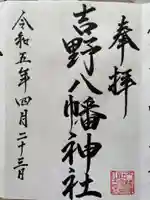 奉拝
吉野八幡神社
令和五年四月二十三日